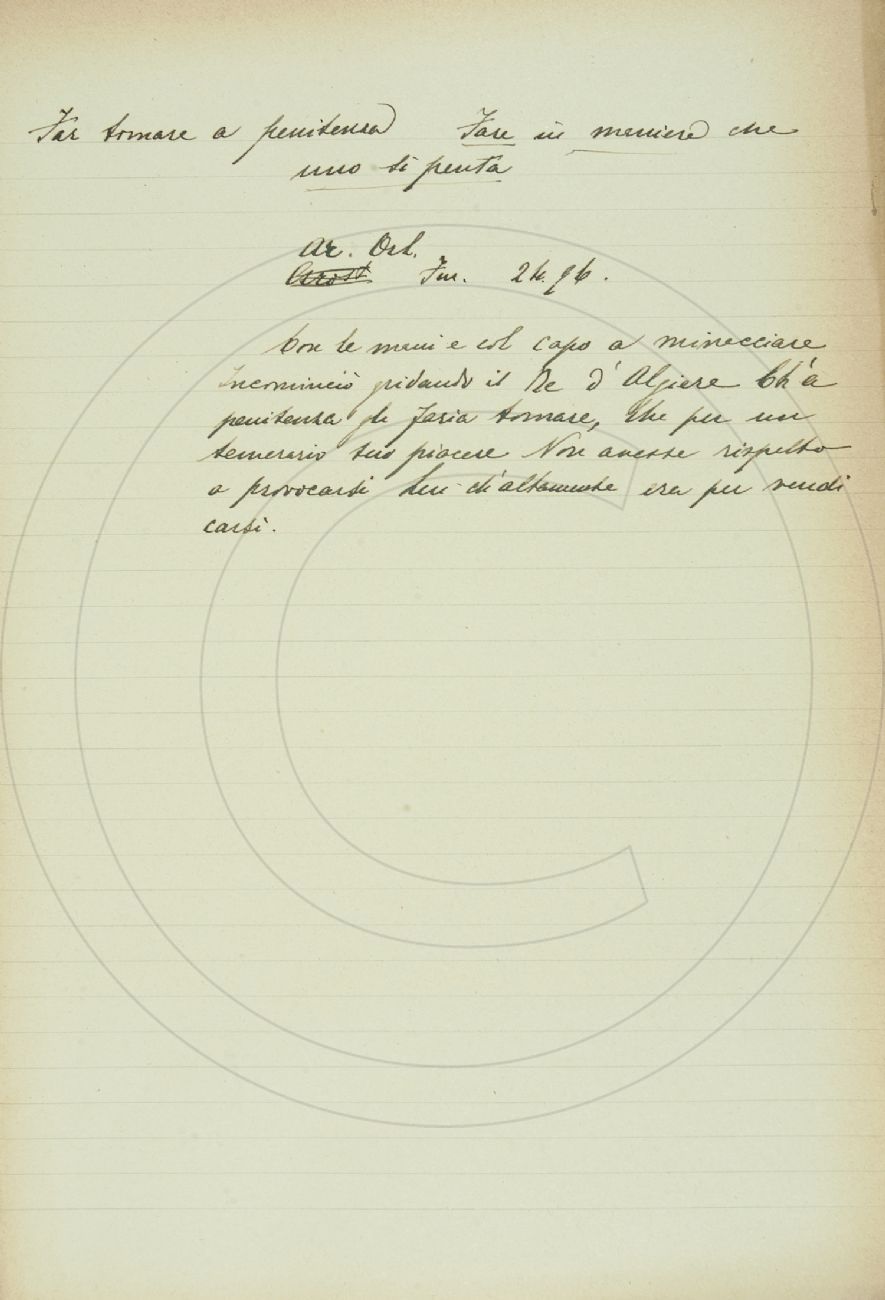 Far tornare a penitenza Fare in maniera che
uno si penta
Ar. Orl.
Ariost Fur. 24. 96.
Con le mani e col capo a minacciare
Incominciò gridando il Re d'Algiere Ch'a
penitenza gli faria tornare, Che per un
temerario suo piacere Non avesse rispetto
a provocarsi Lui ch'altamente era per vendi
carsi.